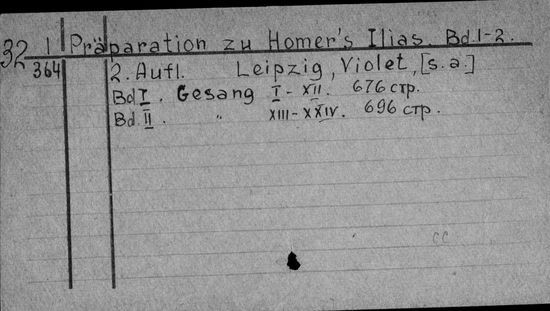 32 1 Präparation zu Homer's Ilias. Bd. 1-2.
364 2. Aufl. Leipzig, Violet, [s.a.]
Bd I. Gesang I - XII. 676 стр.
Bd. II. " XIII - XXIV. 696 стр.
CC